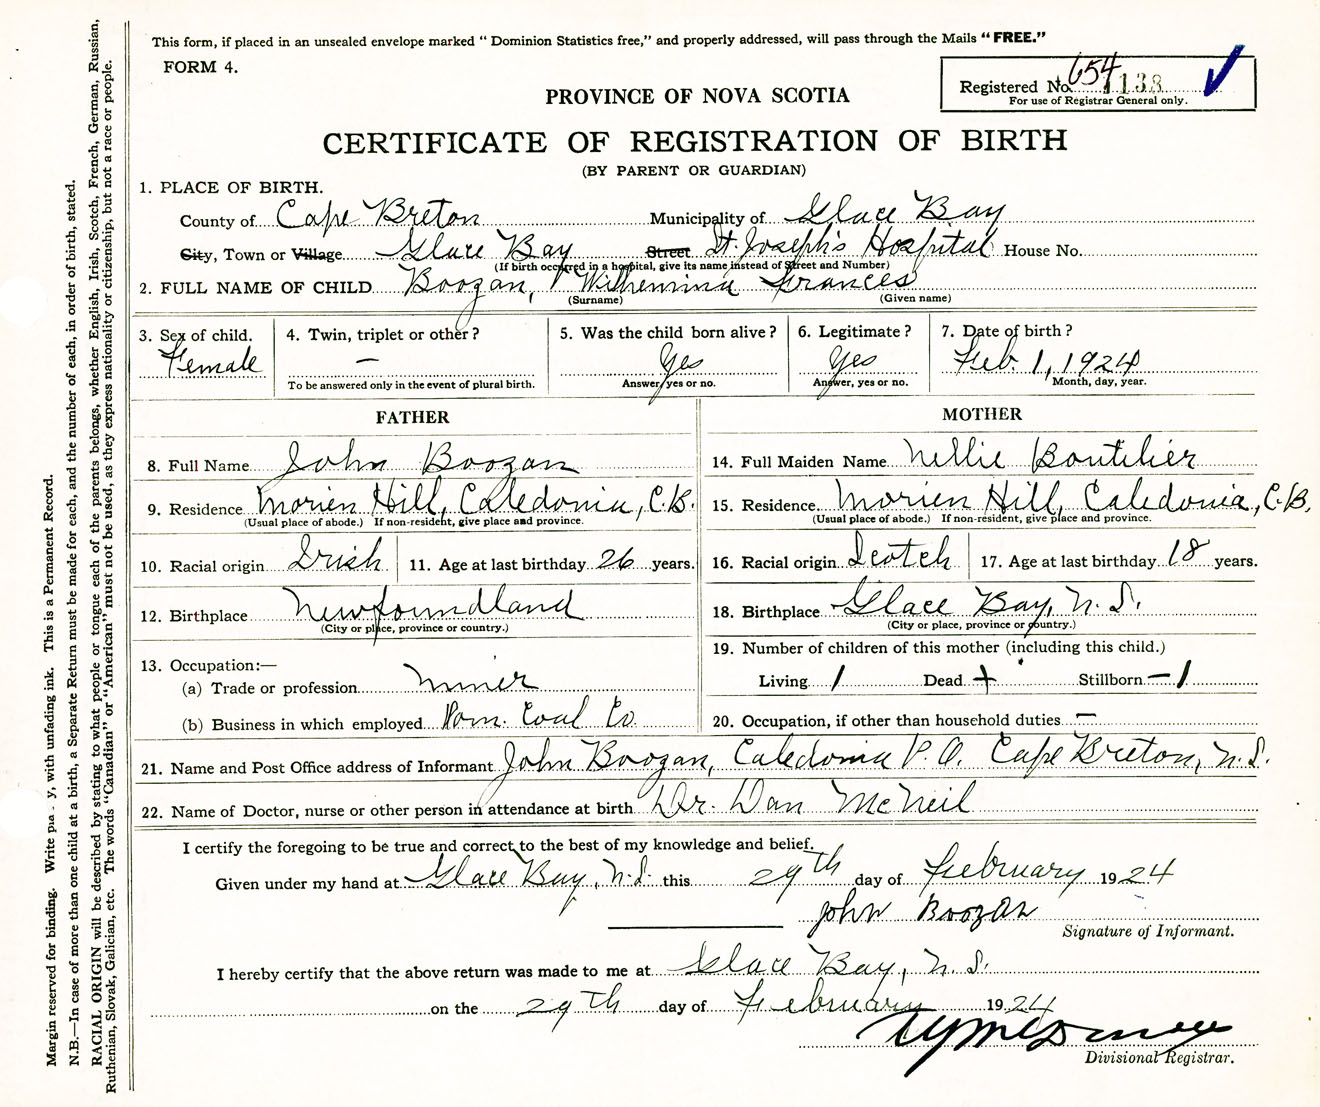 This form, if placed in an unsealed envelope marked "Dominion Statistics free," and properly addressed, will pass through the Mails "FREE."
FORM 4.
Registered No. 654 1138
For use of Registrar General only.
PROVINCE OF NOVA SCOTIA
CERTIFICATE OF REGISTRATION OF BIRTH
(BY PARENT OR GUARDIAN)
1. PLACE OF BIRTH.
County of Cape Breton Municipality of Glace Bay
City, Town or Village Glace Bay Street St. Joseph's Hospital House No.
(If birth occurred in a hospital, give its name instead of Street and Number)
2. FULL NAME OF CHILD Boozan, Wilhemina Frances
(Surname) (Given name)
3. Sex of child. 4. Twin, triplet or other? 5. Was the child born alive? 6. Legitimate? 7. Date of birth?
Female — Yes Yes Feb. 1, 1924
To be answered only in the event of plural birth. Answer, yes or no. Answer, yes or no. Month, day, year.
FATHER MOTHER
8. Full Name John Boozan 14. Full Maiden Name Nellie Boutilier
9. Residence Morien Hill, Caledonia, C.B. 15. Residence Morien Hill, Caledonia, C.B.
(Usual place of abode.) If non-resident, give place and province. (Usual place of abode.) If non-resident, give place and province.
10. Racial origin Irish 11. Age at last birthday 26 years. 16. Racial origin Scotch 17. Age at last birthday 18 years.
12. Birthplace Newfoundland 18. Birthplace Glace Bay, N.S.
(City or place, province or country.) (City or place, province or country.)
13. Occupation:— 19. Number of children of this mother (including this child.)
(a) Trade or profession miner Living 1 Dead + Stillborn — 1
(b) Business in which employed Dom. Coal Co. 20. Occupation, if other than household duties —
21. Name and Post Office address of Informant John Boozan, Caledonia P.O. Cape Breton, N.S.
22. Name of Doctor, nurse or other person in attendance at birth Dr. Dan McNeil
I certify the foregoing to be true and correct to the best of my knowledge and belief.
Given under my hand at Glace Bay, N.S. this 29th day of February 1924
John Boozan
Signature of Informant.
I hereby certify that the above return was made to me at Glace Bay, N.S.
on the 29th day of February 1924
Divisional Registrar.
Margin reserved for binding. Write with unfading ink. This is a Permanent Record.
N.B.—In case of more than one child at a birth, a Separate Return must be made for each, and the number of each, in order of birth, stated.
RACIAL ORIGIN will be described by stating to what people or tongue each of the parents belongs, whether English, Irish, Scotch, French, German, Russian,
Ruthenian, Slovak, Galician, etc. The words "Canadian" or "American" must not be used, as they express nationality or citizenship, but not a race or people.